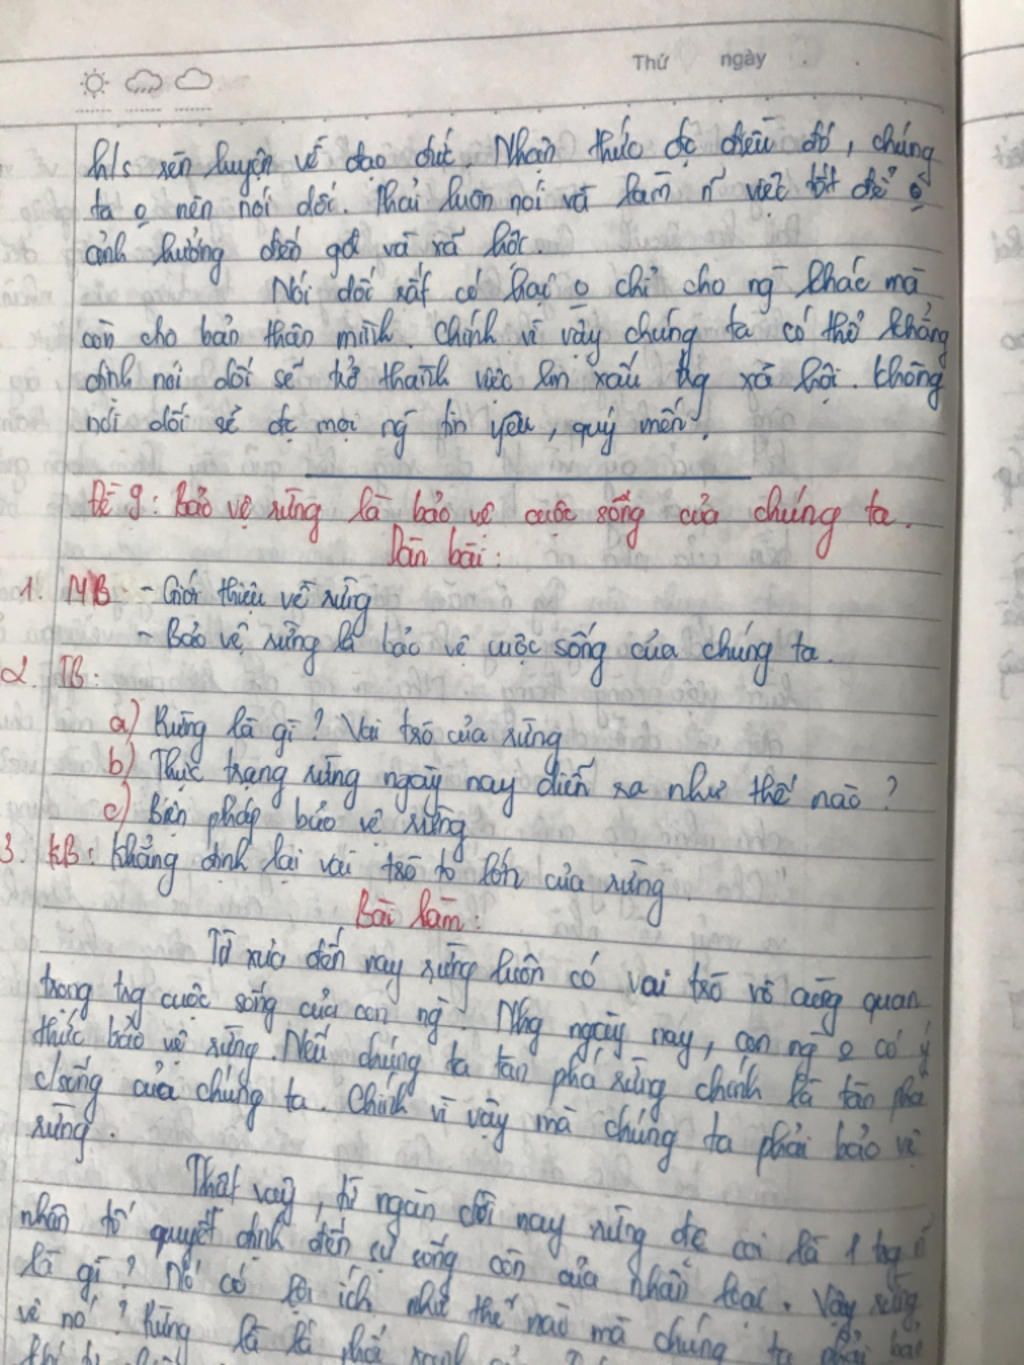 Thứ ngày
h/s rèn luyện về đạo đức. Nhận thức đc điều đó, chúng
ta o nên nói dối. Phải luôn nói và làm n~ việc tốt để o
ảnh hưởng đến gđ và xã hội.
Nói dối rất có hại o chỉ cho ng khác mà
còn cho bản thân mình. Chính vì vậy chúng ta có thể khẳng
định nói dối sẽ trở thành việc làm xấu trg xã hội. Không
nói dối sẽ đc mọi ng tin yêu, quý mến.
Đề 9: Bảo vệ rừng là bảo vệ cuộc sống của chúng ta.
Dàn bài:
1. MB: - Giới thiệu về rừng
- Bảo vệ rừng là bảo vệ cuộc sống của chúng ta.
2. TB:
a) Rừng là gì? Vai trò của rừng
b) Thực trạng rừng ngày nay diễn ra như thế nào?
c) Biện pháp bảo vệ rừng
3. KB: Khẳng định lại vai trò to lớn của rừng.
Bài làm:
Từ xưa đến nay rừng luôn có vai trò vô cùng quan
trọng trg cuộc sống của con ng. Nhg ngày nay, con ng o có ý
thức bảo vệ rừng. Nếu chúng ta tàn phá rừng chính là tàn phá
sống của chúng ta. Chính vì vậy mà chúng ta phải bảo vệ
rừng.
Thật vậy, từ ngàn đời nay rừng đc coi là 1 trg
nhân tố quyết định đến sự sống còn của nhân loại. Vậy rừng
là gì? Nó có lợi ích như thế nào mà chúng ta phải bảo
vệ nó? Rừng là lá phổi xanh